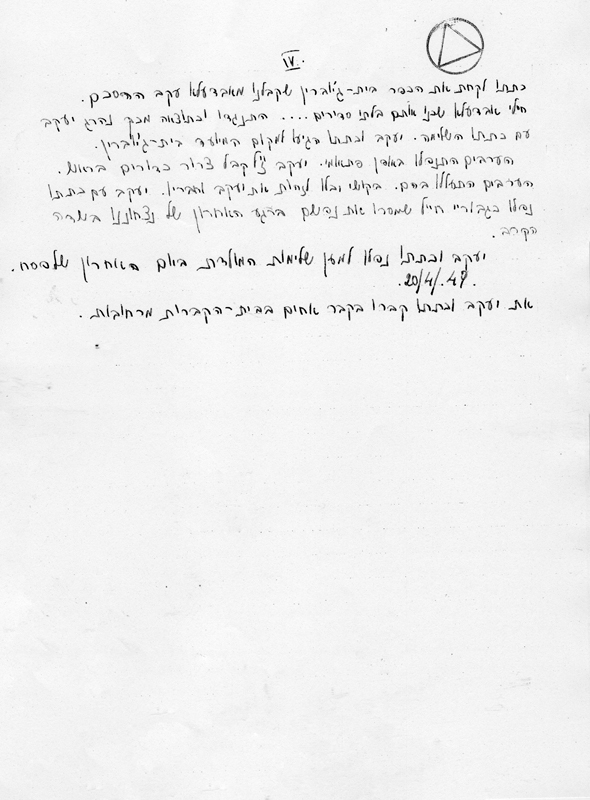 IV.
כתתו לקחת את הכפר בית-ג'וברין שקבלנו מאבדעלא עקב ההסכם.
חילי אבדעלא שכני אותם בלתי סדירים.... התנגדו וכתוצאה מכך נהרג יעקב
עם כתתו השלימה. יעקב וכתתו הגיעו למקום המיועד בית-ג'וברין.
הערבים התנפלו באפן פתאומי. יעקב ז"ל קבל צרור כדורים בראשו.
הערבים התעללו בהם. בקושי יכלו לזהות את יעקב וחבריו. יעקב עם כתתו
נפלו כגבורי חיל שמסרו את נפשם ברגע האחרון של נצחוננו בשדה
הקרב.
יעקב וכתתו נפלו למען שלימות המולדת ביום האחרון של פסח.
20/4/.49.
את יעקב וכתתו קברו בקבר אחים בבית-הקברות מרחובות.